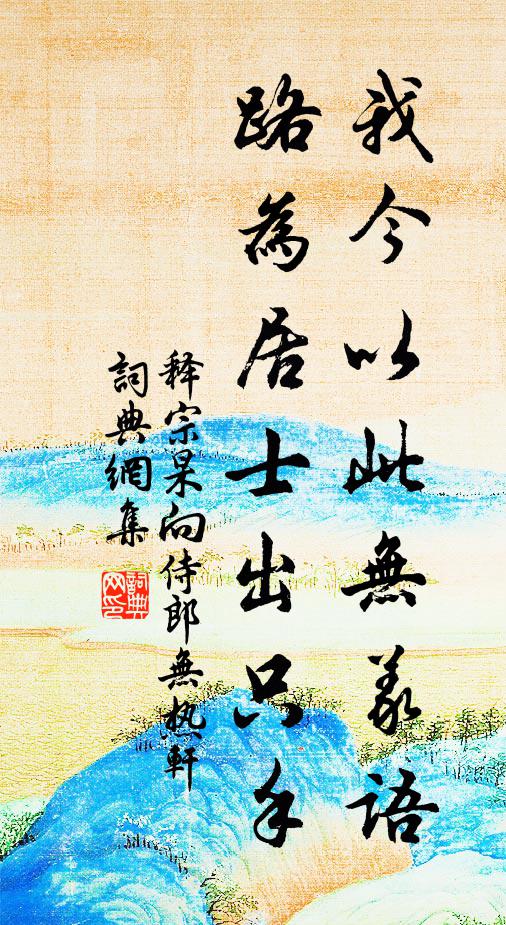 我今以此無義語
路為居士出只手
释宗杲向侍郎無热軒
詞典網集
詞典
网印